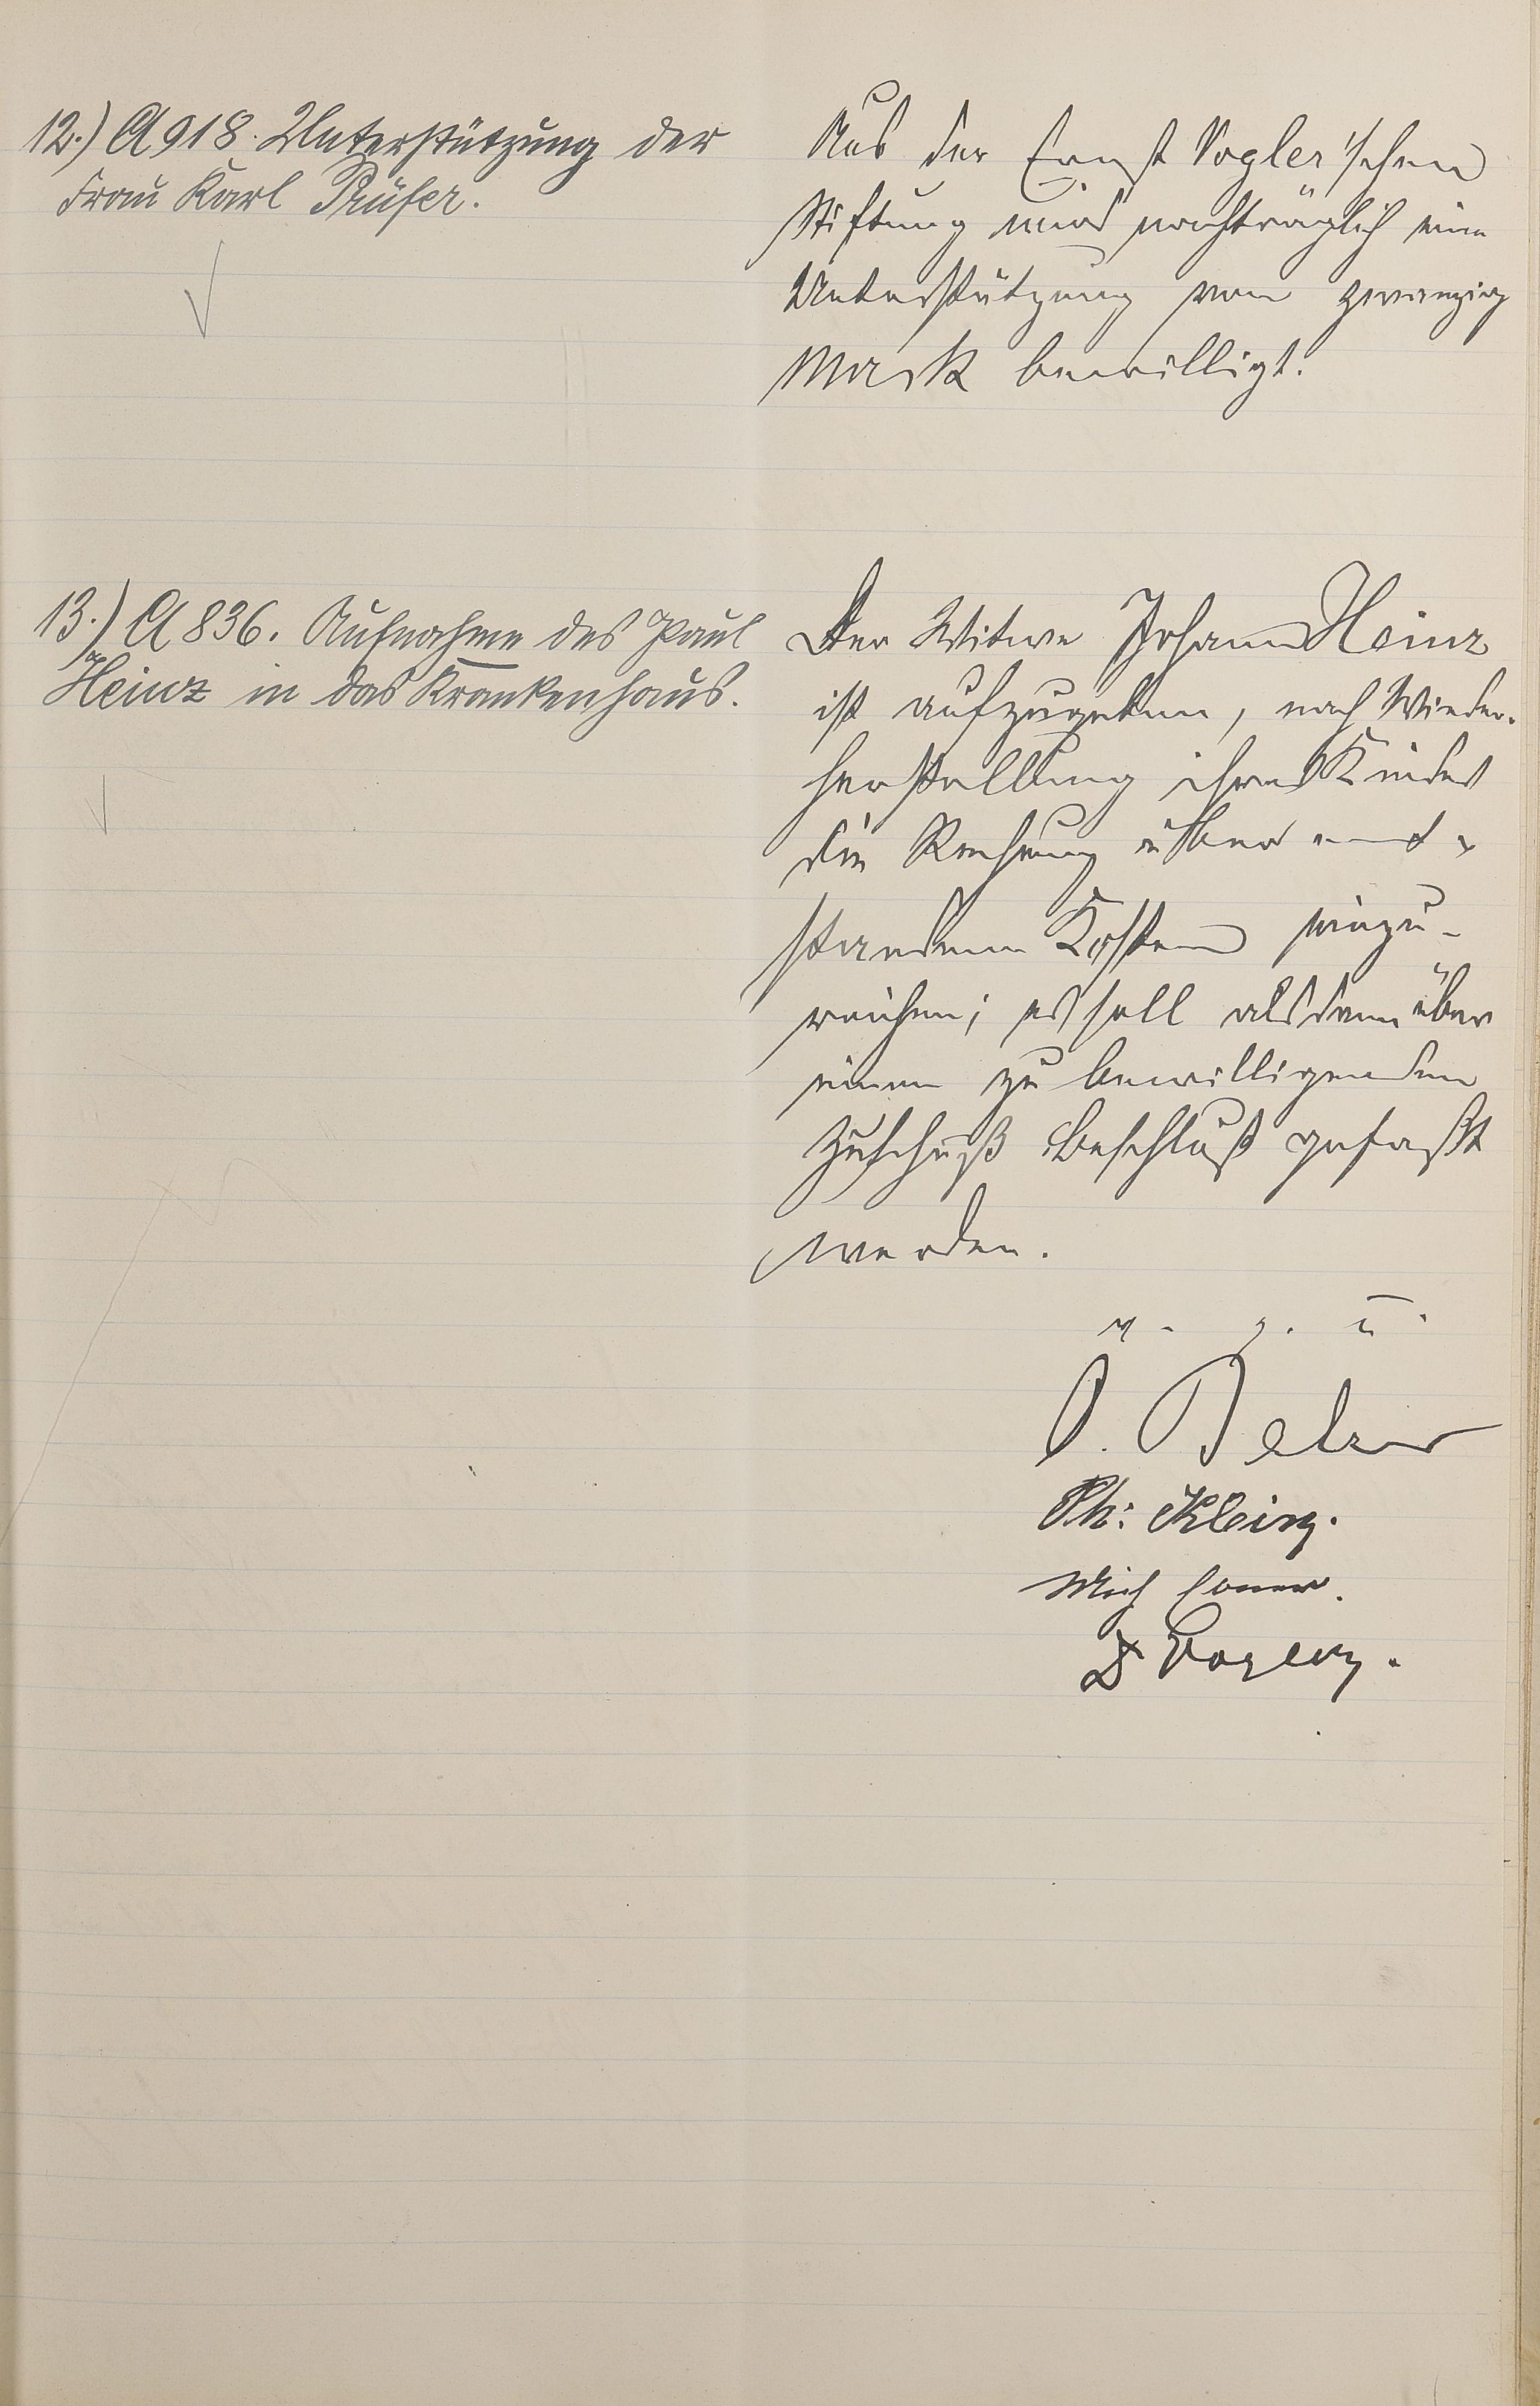 12.) A 918. Unterstützung der
Frau Karl Prüfer.
Aus der Ernst Vogler'schen
Stiftung wird nachträglich eine
Unterstützung von zwanzig
Mark bewilligt.
13.) A 836. Aufnahme des Paul
Heinz in das Krankenhaus.
Der Witwe Johann Heinz
ist aufzugeben, nach Wieder-
herstellung ihres Kindes
die Rechnung über ent-
standene Kosten einzu-
reichen; es soll alsdann über
einen zu bewilligenden
Zuschuß Beschluß gefaßt
werden.
v. g. u.
Ph: Klein.